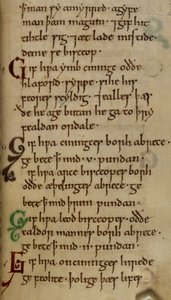 ꝥ man sy amyrred. agyfe
man þam magum. 7 gif hit
tihtle sig. 7 æt lade mistide
deme se bisceop.
Gif hƿa ymb cininge odde
hlaford syrƿe. si he his
feores scyldig. 7 ealles þæs
de he age butan he ga to þry
fealdan ordale.
Gif hƿa cininges borh abrece.
ge bete ꝥ mid .v. pundan.
Gif hƿa arce bisceopes borh
odde æþelinges abrece. ge
bete ꝥ mid þrim pundan.
Gif hƿa leod bisceopes. odde
ealdor mannes borh abrece.
ge bete ꝥ mid .ii. pundan.
Gif hƿa on cininges hirede
ge feohte. þolige þæs lifes.